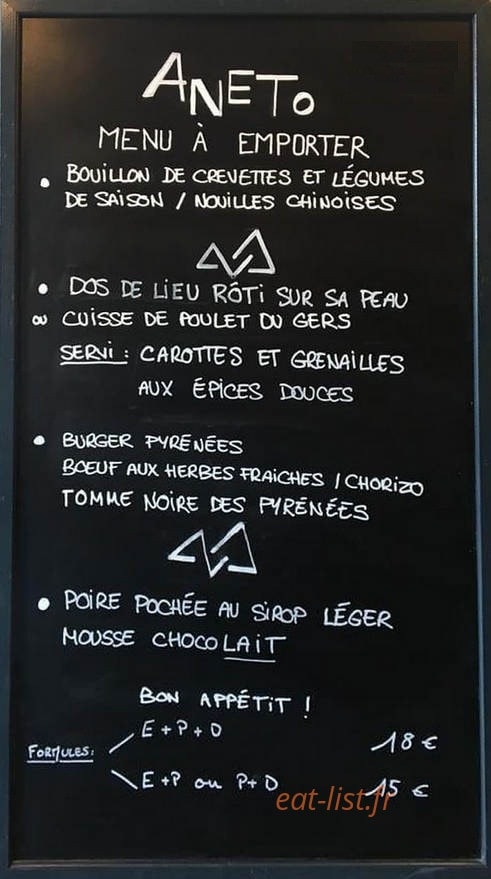 ANETO
MENU À EMPORTER
• BOUILLON DE CREVETTES ET LÉGUMES
DE SAISON / NOUILLES CHINOISES
• DOS DE LIEU RÔTI SUR SA PEAU
OU CUISSE DE POULET DU GERS
SERVI : CAROTTES ET GRENAILLES
AUX ÉPICES DOUCES
• BURGER PYRENÉES
BOEUF AUX HERBES FRAICHES / CHORIZO
TOMME NOIRE DES PYRÉNÉES
• POIRE POCHÉE AU SIROP LÉGER
MOUSSE CHOCOLAIT
BON APPÉTIT !
FORMULES:
E + P + D 18 €
E + P ou P + D 15 €
eat-list.fr